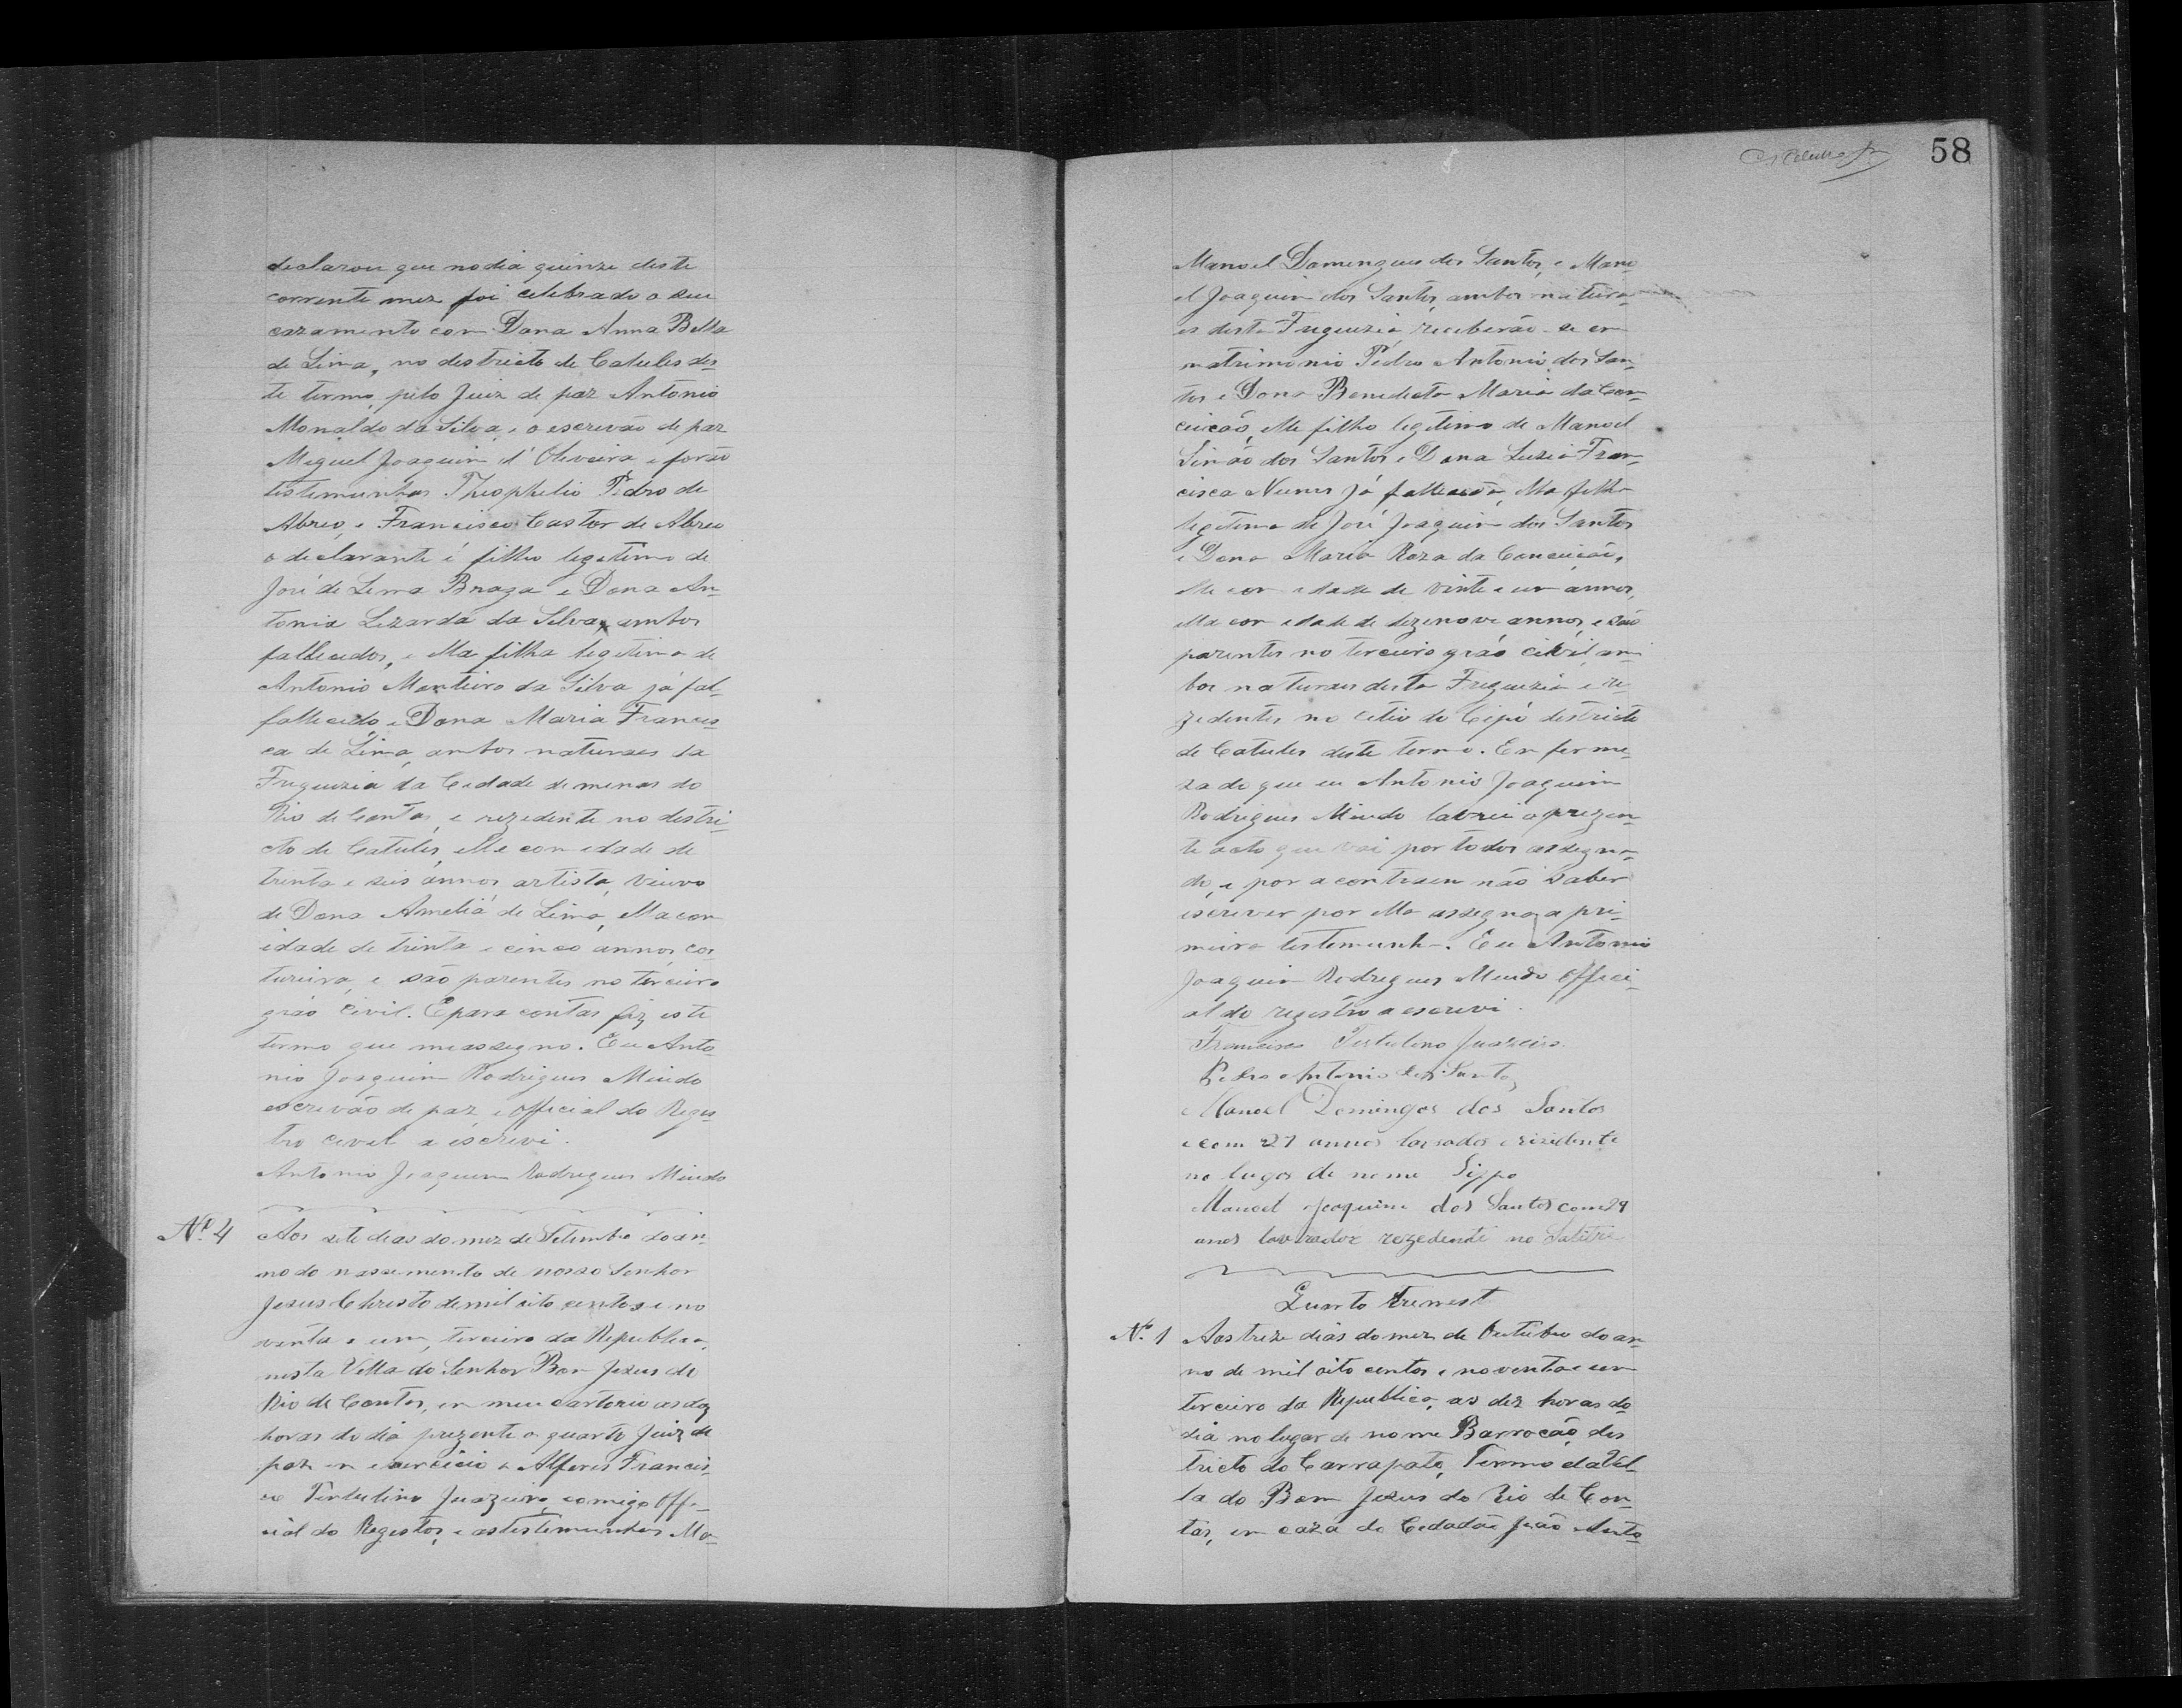 declarou que no dia quinze deste
corrente mez foi celebrado o seu
cazamento com Dona Anna Bella
de Lima, no destricto de Catules des-
te termo, pelo Juiz de paz Antonio
Monaldo da Silva, e o escrevão de paz
Meguel Joaquim d'Oliveira e forão
testemunhas Theophelio Pedro de
Abreo, e Francisco Castor de Abreu
o declarante é filho legetimo de
José de Lima Braga e Dona An-
tonia Lizarda da Silva, ambos
fallecidos, e ella filha legetima de
Antonio Monteiro da Silva já fal-
fallecido e Dona Maria Francis-
ca de Lima, ambos naturaes da
Freguezia da Cidade de menas do
Rio de Contas, e rezedente no destri-
cto de Catules, elle com edade de
trenta e seis annos, artista, viuvo
de Dona Ameliá de Lima, ella com
idade de trinta e cinco annos, cos-
tureira, e são parentes no terceiro
gráo Civil. E para contas fiz este
termo que me assegno. Eu Anto-
nio Joaquim Rodrigues Miudo
escrevão de paz, e official do Regis-
tro cevel a escrevi.
Antonio Joaquim Rodrigues Miudo
Nº 4 Aos sete dias do mez de Setembro do an-
no do nascemento de nosso Senhor
Jesus Christo de mil oito centos e no
venta e um, terceiro da Republica,
nesta Villa do Senhor Bom Jezus do
Rio de Contas, em meu cartorio as dez
horas do dia prezente o quarto Juiz de
paz em exercicio o Alferes Francis-
co Tertulino Juazeiro, comigo Offi-
cial do Registos, e as testemunhas Ma-
58
Manoel Domengues dos Santos, e Mano-
el Joaquim dos Santos, ambos natura-
es desta Freguezia, receberão-se em
matrimonio Pedro Antonio dos San-
tos e Dona Benedicta Maria da Con-
ceicão, elle filho legetimo de Manoel
Simão dos Santos e Dona Luzia Fran-
cisca Nunes já fallecida, ella filha
legetima de José Joaquim dos Santos
e Dona Maria Roza da Conceição,
elle com edade de vinte e um annos,
ella com edade de dezenove annos, e são
parentes no terceiro gráo civil, am-
bos naturaes desta Freguezia e re-
zedentes no Citio do Cipó destricto
de Catules deste termo. Em ferme-
za do que eu Antonio Joaquim
Rodrigues Miudo lavrei o prezen-
te acto que vai por todos assegna-
do, e por a contraen não saber
escrever por ella assegna a pri-
meira testemunh-. Eu Antonio
Joaquim Rodrigues Miudo Offici-
al do registro a escrevi.
Francisco Tertulino Juazeiro.
Pedro Antonio dos Santos
Manoel Domingos dos Santos
com 27 annos lavrador e rizidente
no lugar de nome Sippo
Manoel Joaquim dos Santos com 29
anos lavrador rezedente no Salitre
Quarto tremest
Nº 1 Aos treze diás do mez de Outubro do an-
no de mil oito centos e noventa e um
terceiro da Republica, as dez horas do
dia no lugar de nome Barrocão, des
tricto do Carrapato, Termo da Vil-
la do Bom Jezus do Rio de Con-
tas, em caza do Cedadão João Anto-